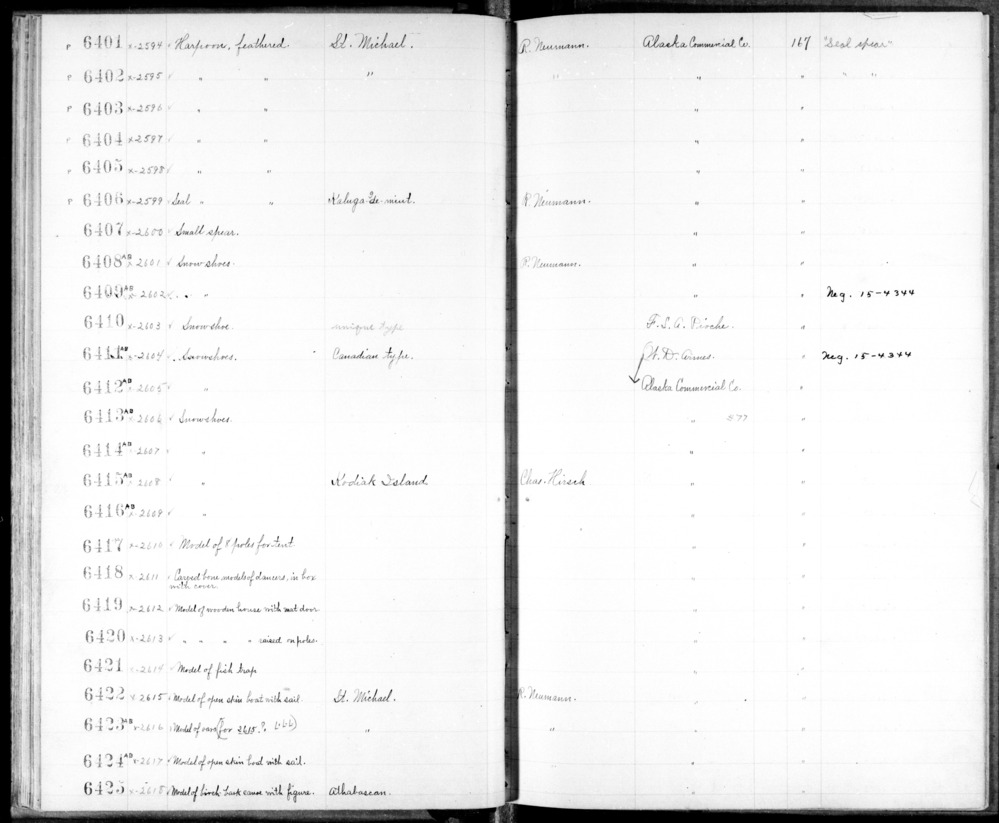 P 6401 x-2594 ✓ Harpoon, feathered. St. Michael. R. Neumann. Alaska Commercial Co. 167 "Seal spear"
P 6402 x-2595 ✓ " " " " " " " "
P 6403 x-2596 ✓ " " " "
P 6404 x-2597 ✓ " " " "
P 6405 x-2598 ✓ " " " "
P 6406 x-2599 ✓ Seal " " Kaluga-Ge-miut. R. Neumann. " "
6407 x-2600 ✓ Small spear. " "
6408 AB x-2601 ✓ Snowshoes. R. Neumann. " "
6409 AB x-2602 ✓ " " " Neg. 15-4344
6410 x-2603 ✓ Snowshoe. unique type F. L. A. Pioche. "
6411 AB x-2604 ✓ Snowshoes. Canadian type. W. D. " Neg. 15-4344
6412 AB x-2605 ✓ " Alaska Commercial Co. "
6413 AB x-2606 ✓ Snowshoes. " 577 "
6414 AB x-2607 ✓ " " "
6415 AB x-2608 ✓ " Kodiak Island Chas. Hirsch " "
6416 AB x-2609 ✓ " " " "
6417 x-2610 ✓ Model of 8 poles for tent " "
6418 x-2611 ✓ Carved bone models of dancers, in box
with cover. " "
6419 x-2612 ✓ Model of wooden house with mat door " "
6420 x-2613 ✓ " " " " raised on poles. " "
6421 x-2614 ✓ Model of fish trap " "
6422 x-2615 ✓ Model of open skin boat with sail. St. Michael. R. Neumann. " "
6423 AB x-2616 ✓ Model of oars (for 2615? " " " "
6424 AB x-2617 ✓ Model of open skin boat with sail. " "
6425 x-2618 ✓ Model of birch-bark canoe with figure. Athabascan. " "